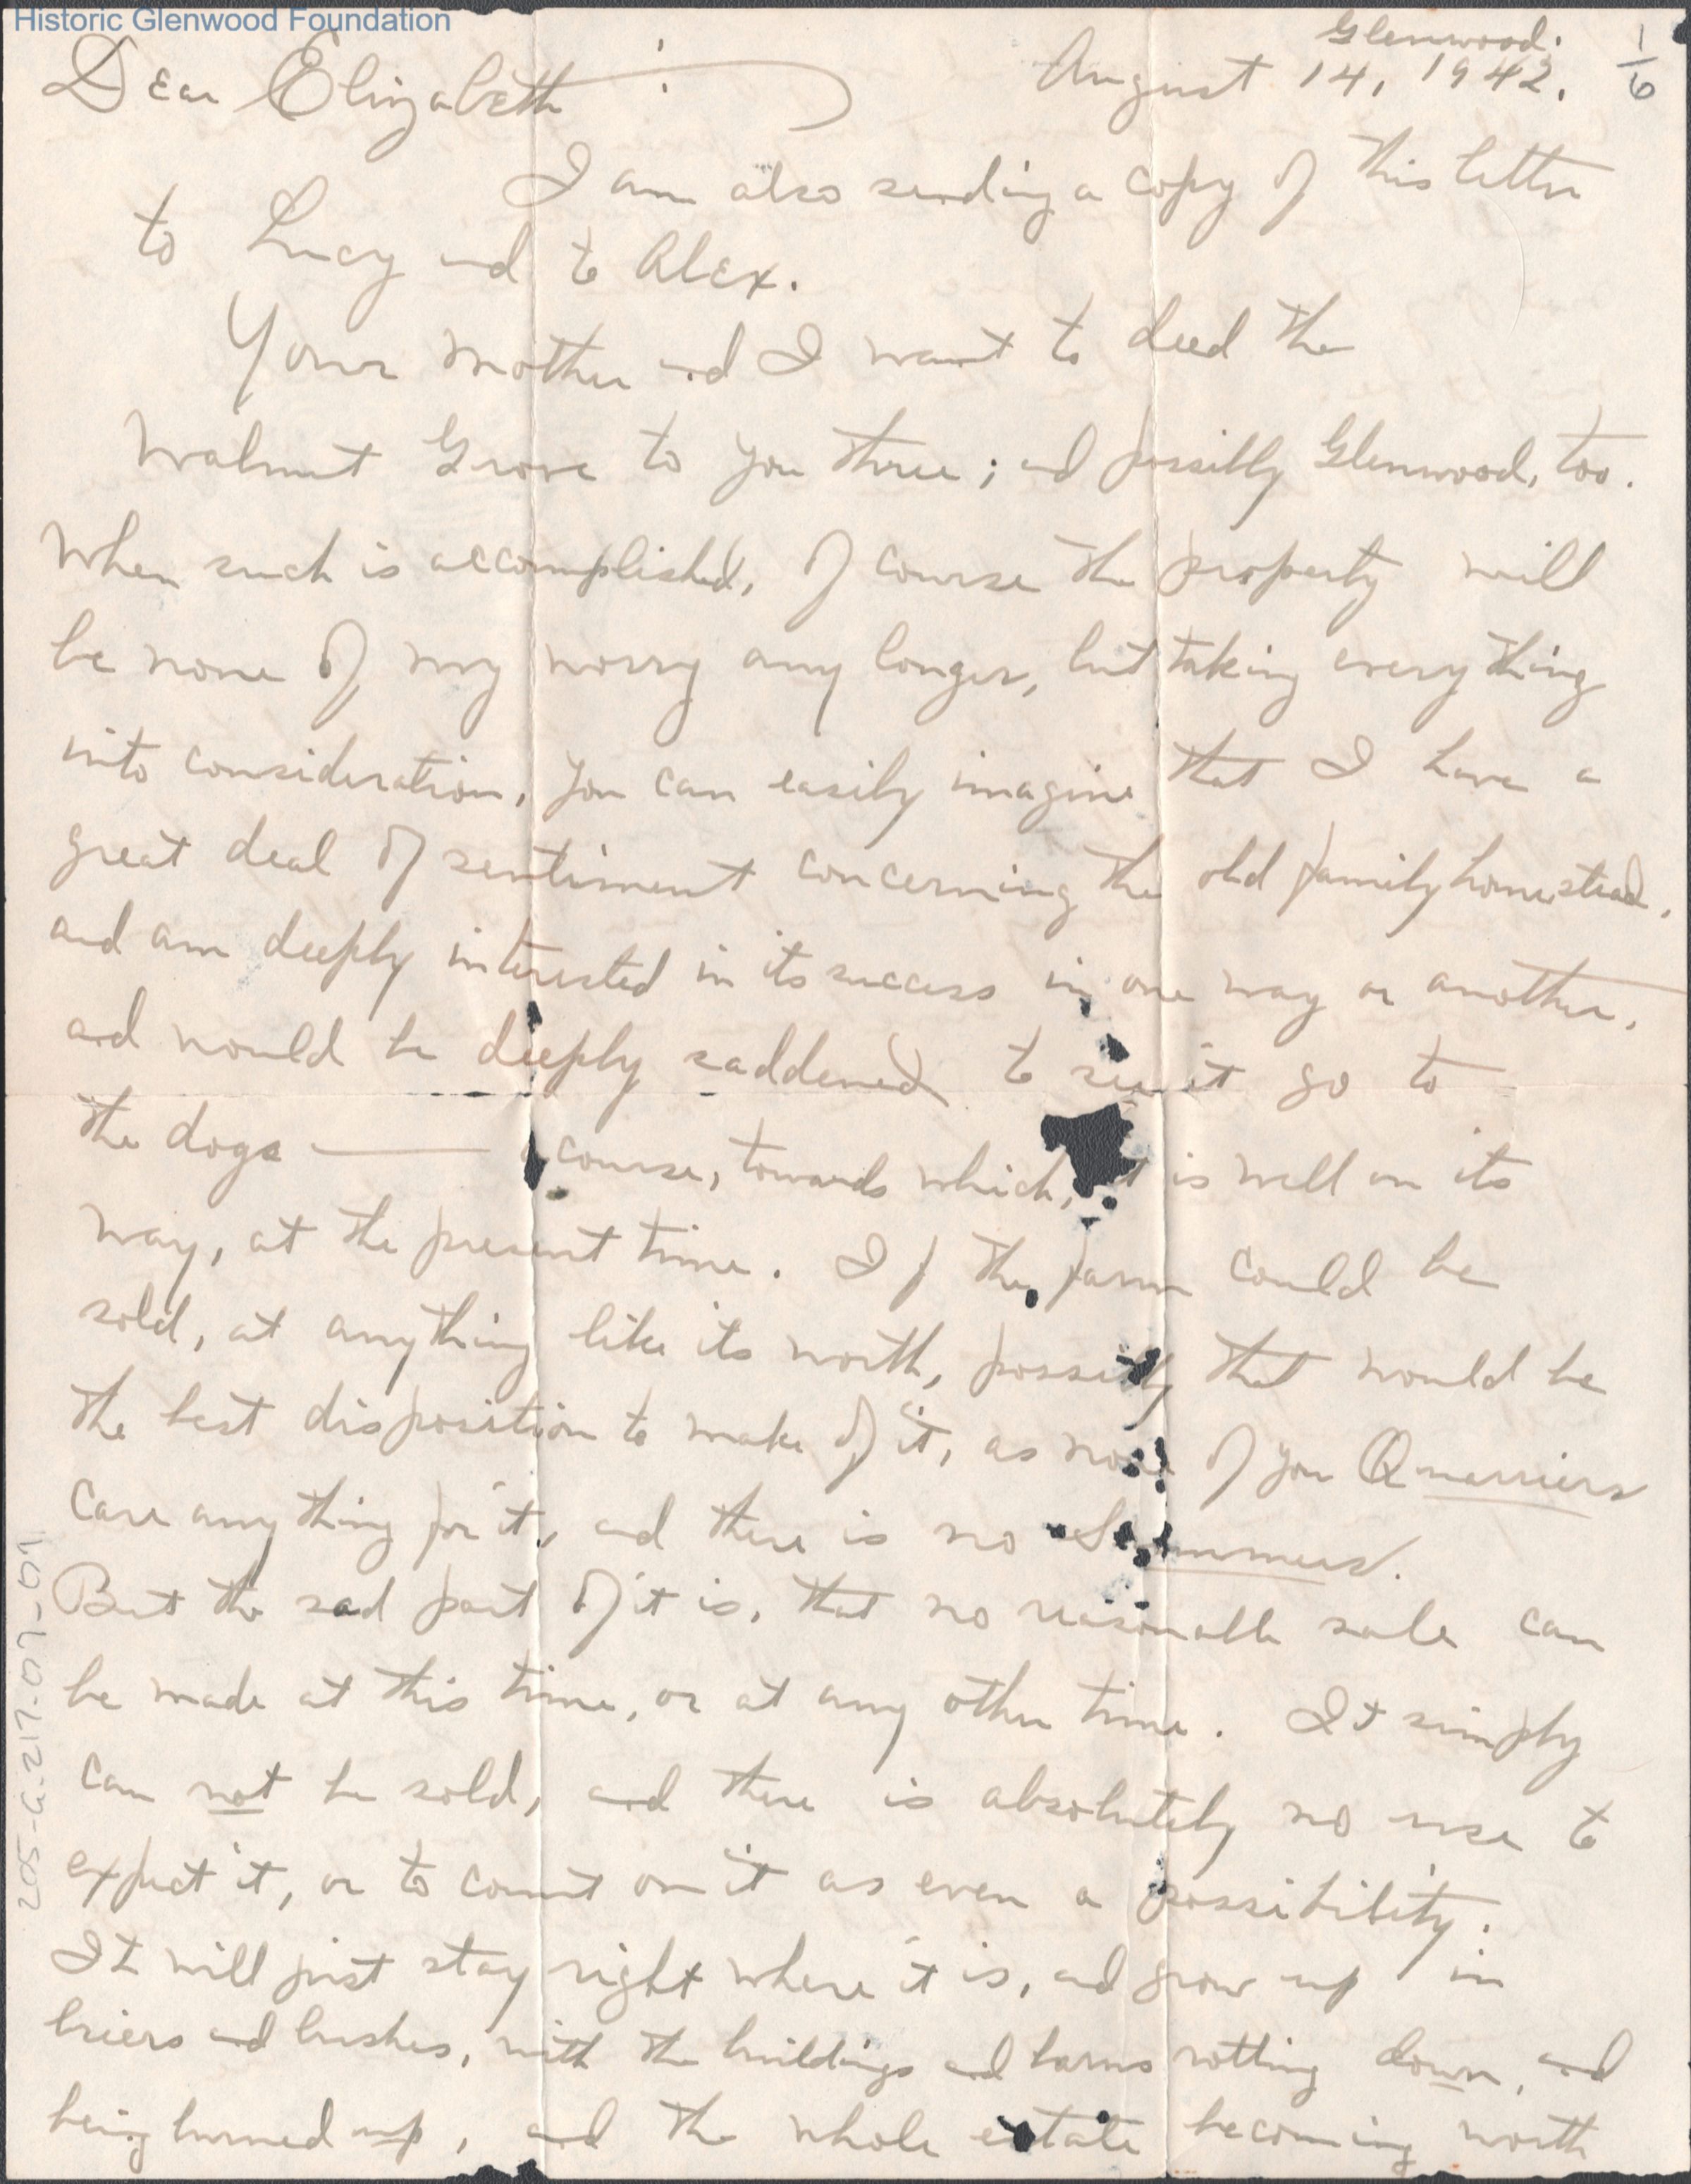 Historic Glenwood Foundation
Glenwood.
Dear Elizabeth : August 14, 1942. 1/6
I am also sending a copy of this letter
to Lucy and to Alex.
Your mother and I want to deed the
Walnut Grove to you three; and possibly Glenwood, too.
When such is accomplished, of course the property will
be none of my worry any longer, but taking every thing
into consideration, you can easily imagine that I have a
great deal of sentiment concerning the old family homestead,
and am deeply interested in its success in one way or another,
and would be deeply saddened to see it go to
the dogs — course, towards which, it is well on its
way, at the present time. If the farm could be
sold, at anything like its worth, possibly that would be
the best disposition to make of it, as none of you Quarriers
care any thing for it, and there is no Summers.
But the sad part of it is, that no reasonable sale can
be made at this time, or at any other time. It simply
can not be sold, and there is absolutely no use to
expect it, or to count on it as even a possibility.
It will just stay right where it is, and grow up in
briers and bushes, with the buildings and barns rotting down, and
being burned up, and the whole estate becoming worth
205-G.217-07-07